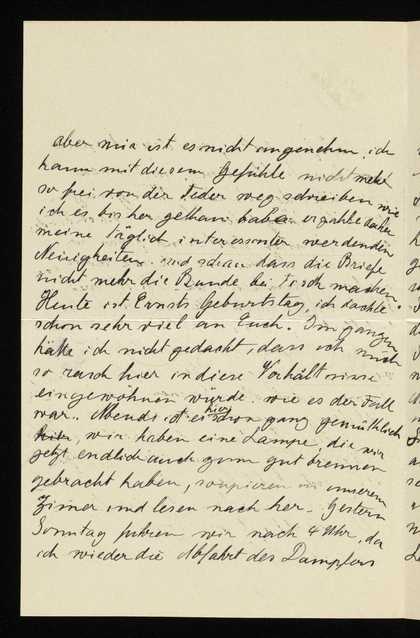 aber mir ist es nicht angenehm, ich
kann mit diesem Gefühle nicht mehr
so frei von der Feder weg schreiben wie
ich es bisher gethan habe erzähle daher
meine täglich interessanter werdenden
Neuigkeiten und schau dass die Briefe
nicht mehr die Runde bei Tisch machen.
Heute ist Ernsts Geburtstag, ich dachte
schon sehr viel an Euch. Im ganzen
hätte ich nicht gedacht, dass ich mich
so rasch hier in diese Verhältnisse
eingewöhnen würde wie es der Fall
war. Abends ist es hier schon ganz gemüthlich
wir haben eine Lampe die wir
jetzt endlich auch zum gut brennen
gebracht haben, soupieren in unserem
Zimer und lesen nach her. Gestern
Sonntag fuhren wir nach 4 Uhr, da
ich wieder die Abfahrt des Dampfers